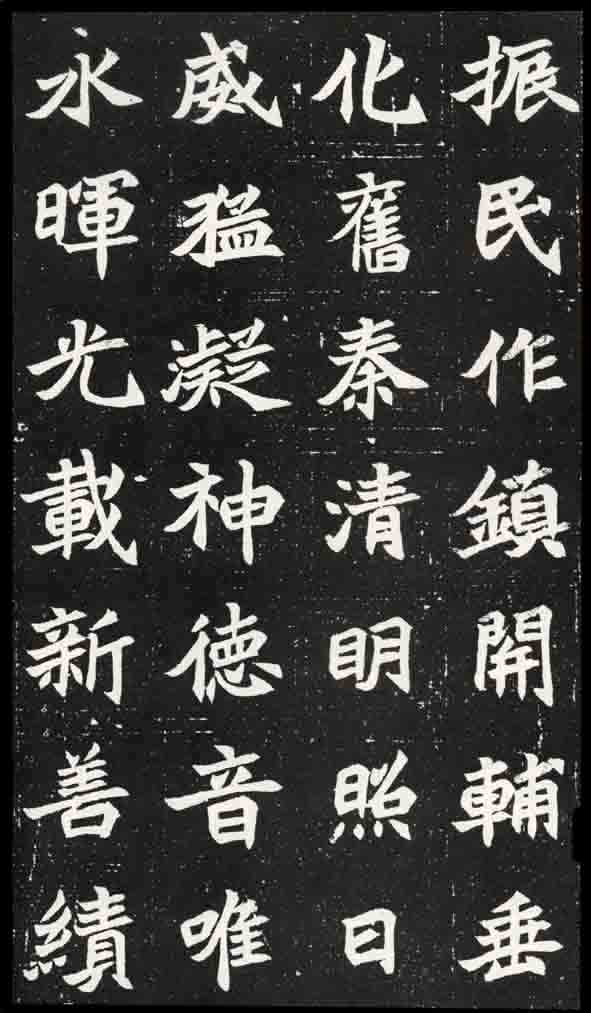 振民作鎮開輔垂
化舊秦清明照日
威猛凝神徳音唯
永暉光載新善績